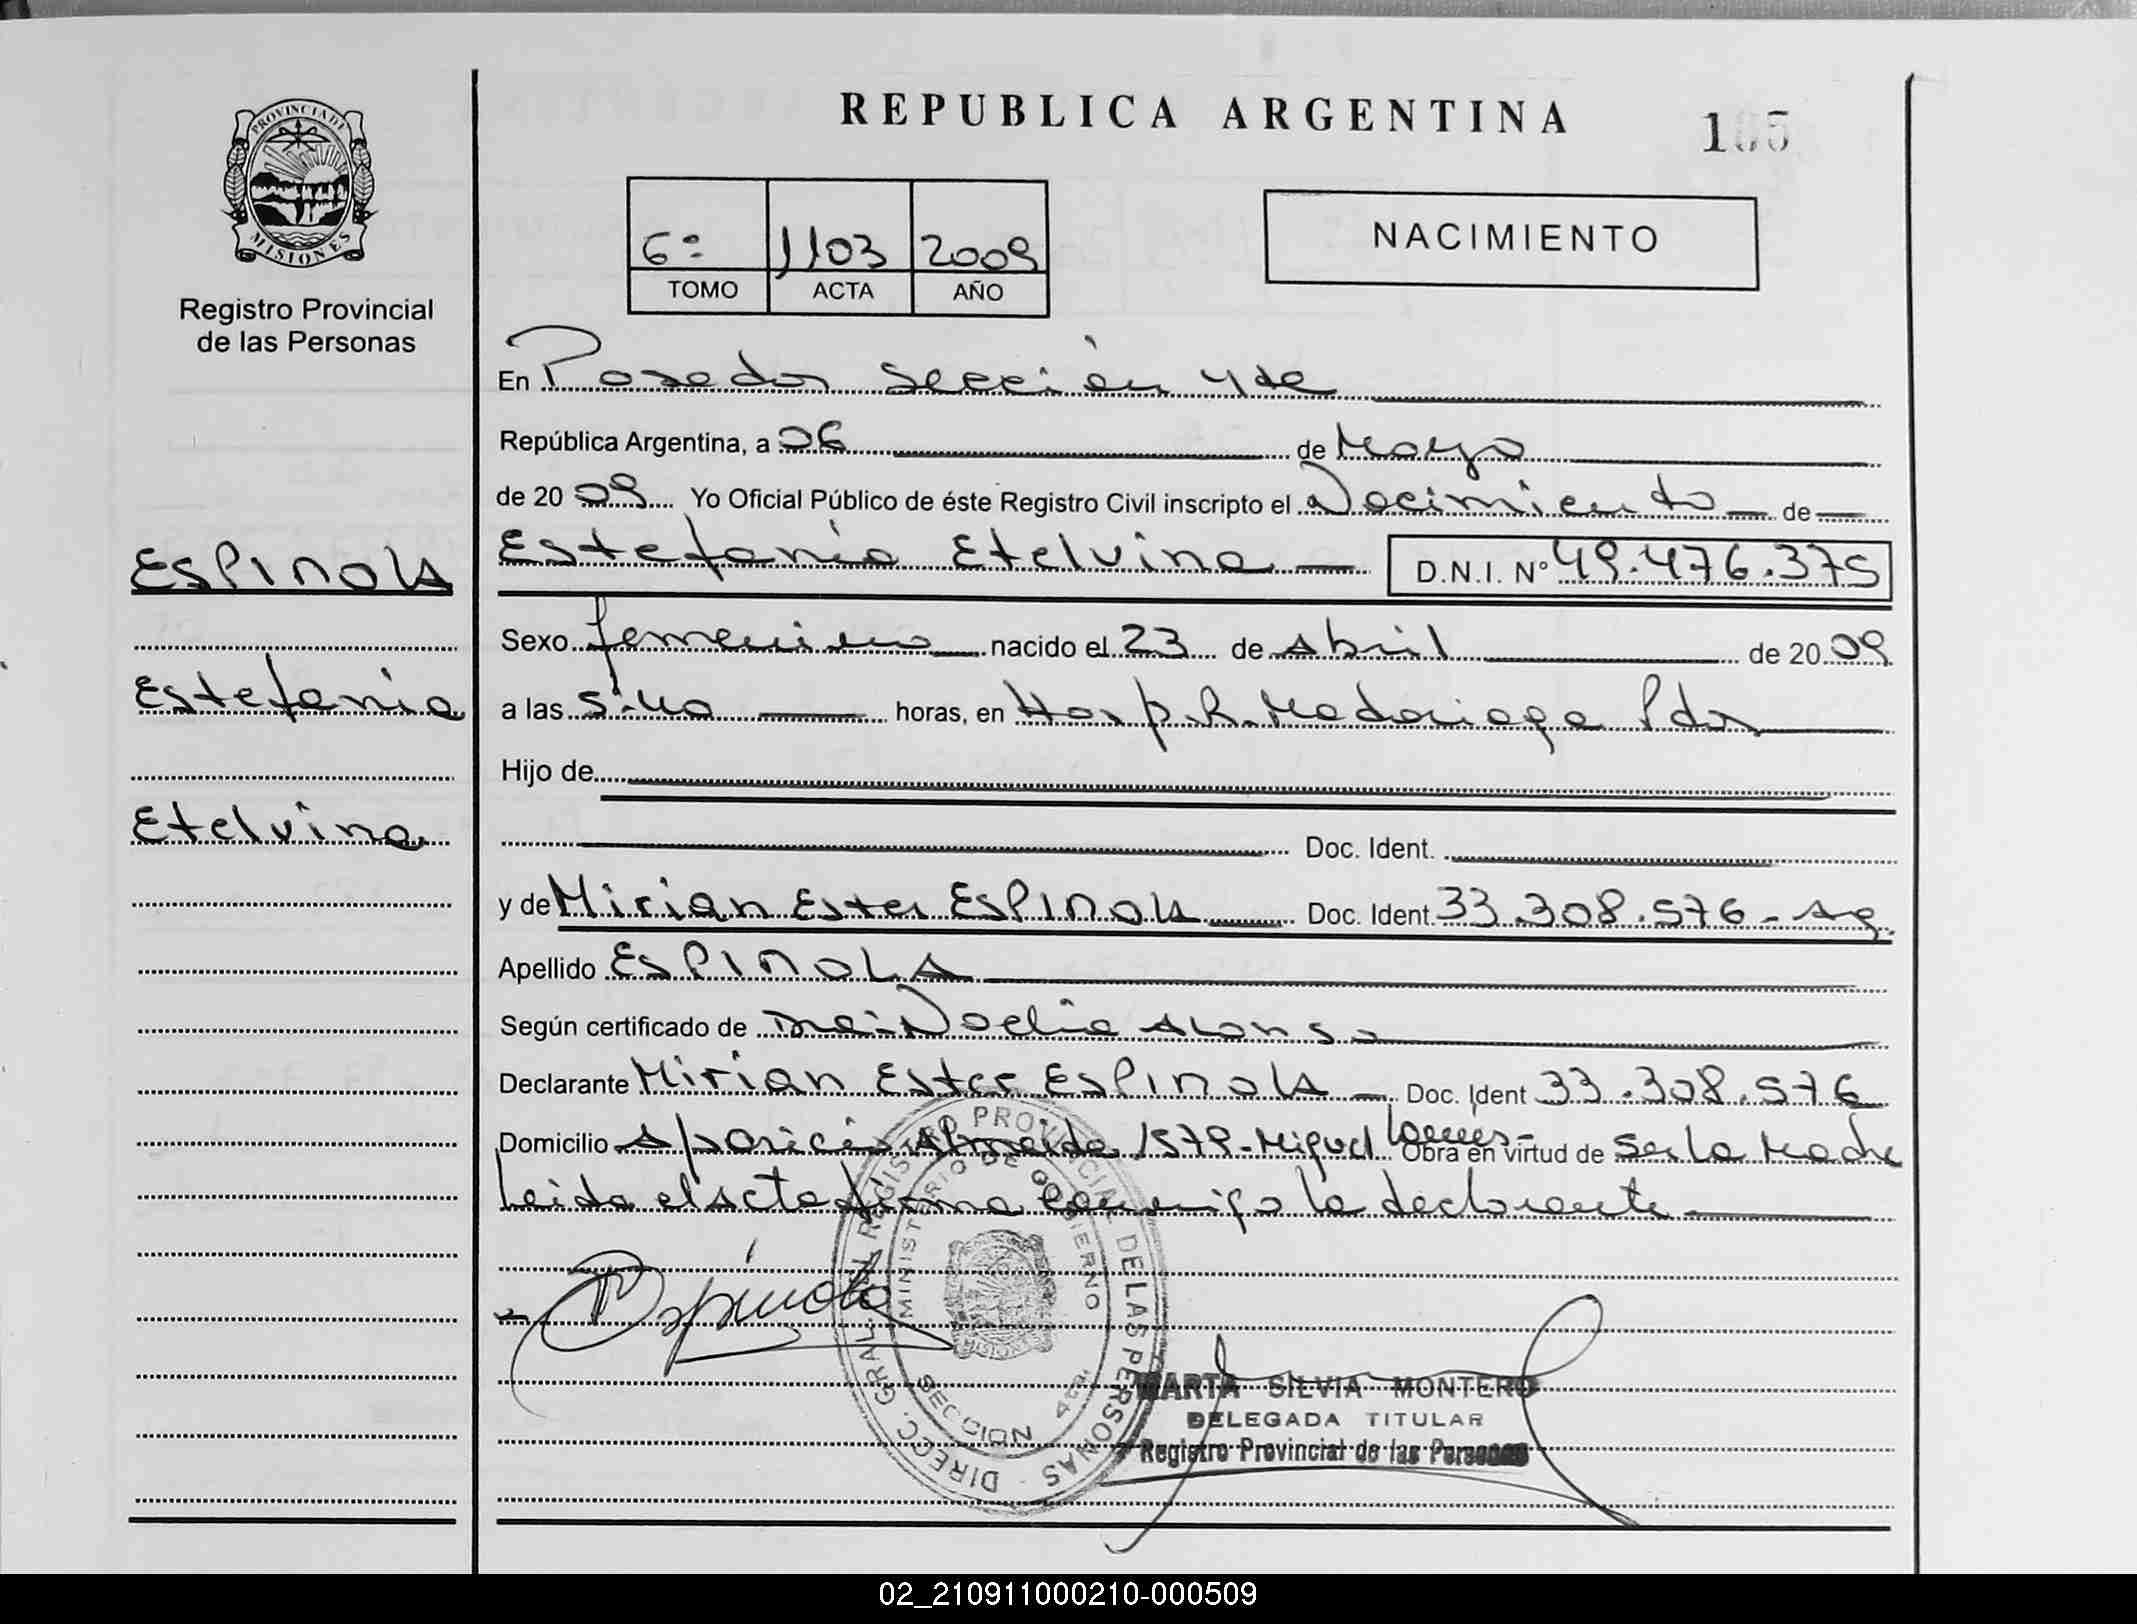 PROVINCIA DE
MISIONES
Registro Provincial
de las Personas
ESPINOLA
Estefania
Etelvina
REPUBLICA ARGENTINA
105
6º 1103 2009
TOMO ACTA AÑO
NACIMIENTO
En Posadas Sección 4ta
República Argentina, a 06 de Mayo
de 2009 Yo Oficial Público de éste Registro Civil inscripto el Nacimiento de
Estefania Etelvina D.N.I. Nº 49.476.375
Sexo femenino nacido el 23 de Abril de 2009
a las 5:40 horas, en Hosp. R. Madariaga Pdas
Hijo de
Doc. Ident.
y de Mirian Ester ESPINOLA Doc. Ident. 33.308.576 - Ag.
Apellido ESPINOLA
Según certificado de Dra. Noelia Alonso
Declarante Mirian Ester ESPINOLA Doc. Ident 33.308.576
Domicilio Aparicio Almeida 1579 - Miguel Lanus - Obra en virtud de Ser la Madre
Leida el acta firma conmigo la declarante
Espinola
DIRECC. GRAL. DEL REGISTRO PROVINCIAL DE LAS PERSONAS
MINISTERIO DE GOBIERNO
SECCION 4ta.
MARTA SILVIA MONTERO
DELEGADA TITULAR
Registro Provincial de las Personas
02_210911000210-000509